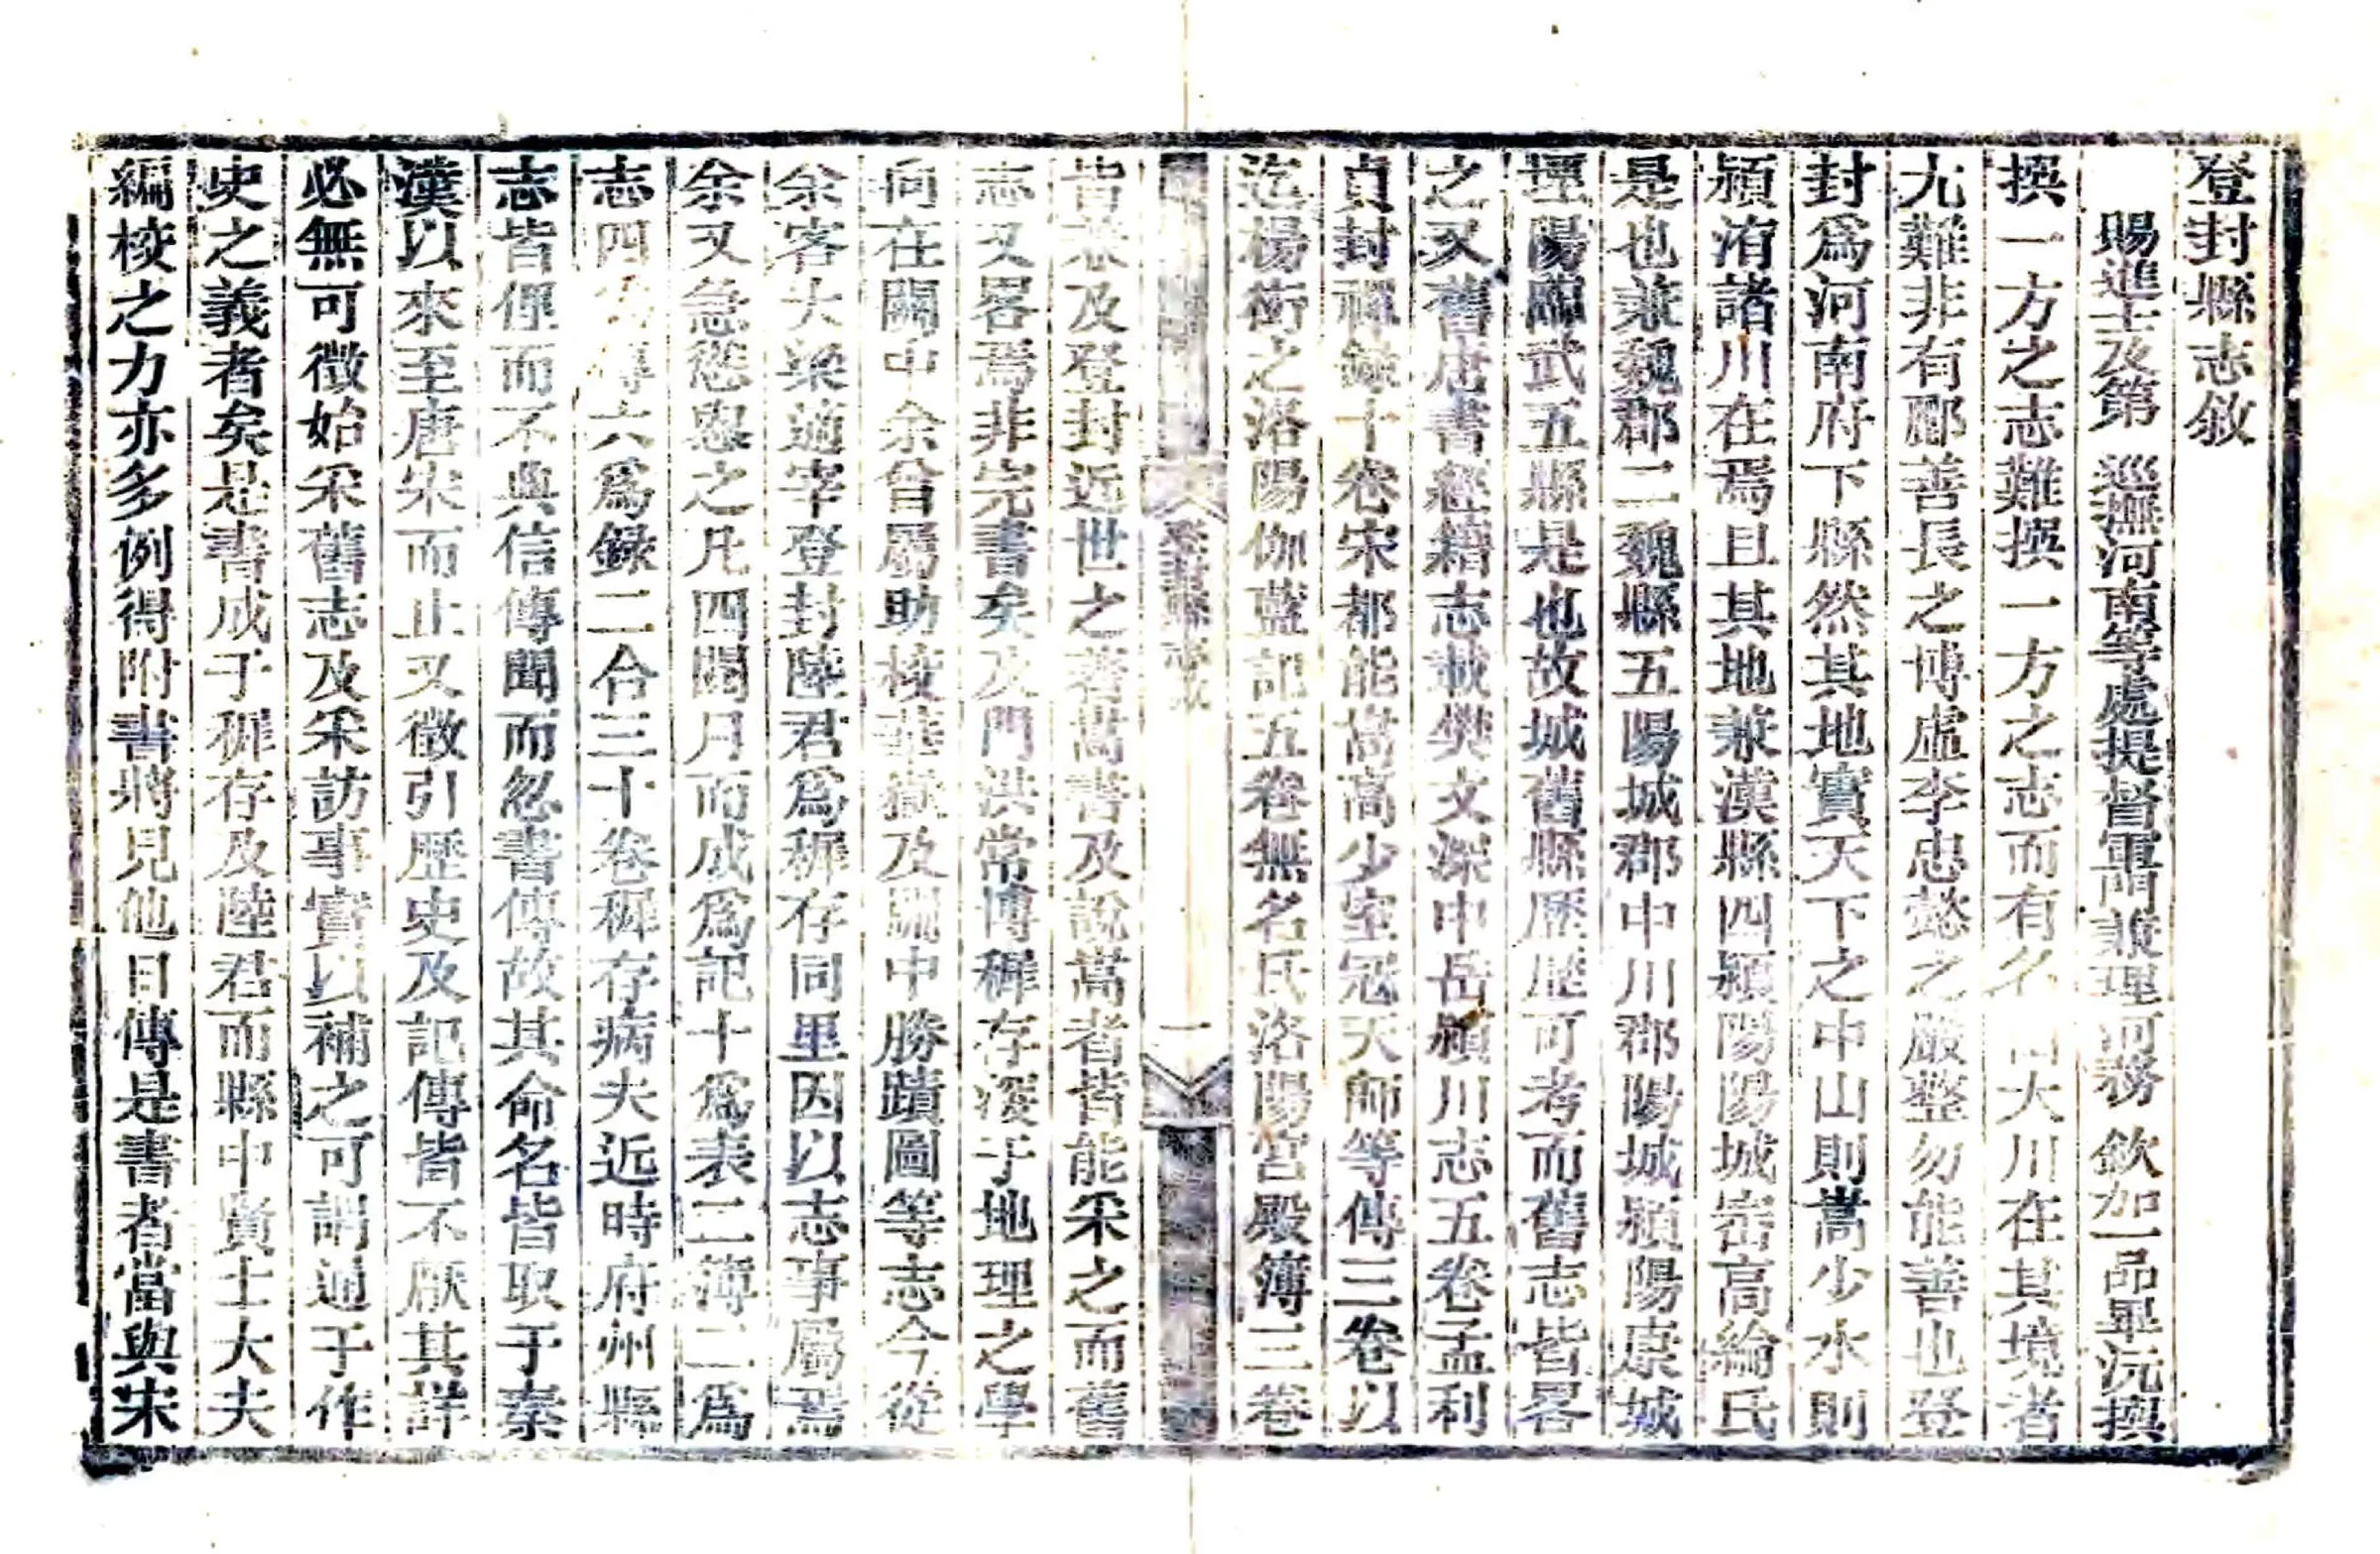 登封縣志敘
賜進士及第 巡撫河南等處提督軍門兼理河務 欽加一品畢沅撰
撰一方之志難撰一方之志而有名 大川在其境者
尢難非有酈善長之博虛李忠懿之嚴整勿能善也登
封爲河南府下縣然其地實天下之中山則嵩少水則
潁洧諸川在焉且其地兼漢縣四潁陽陽城崈高綸氏
是也兼魏郡二魏縣五陽城郡中川郡陽城潁陽康城
堙陽顯武五縣是也故城舊縣歷歷可考而舊志皆畧
之又舊唐書經籍志載樊文深中岳潁川志五卷孟利
貞封禪錄十卷宋都能嵩高少室冦天师等傳三卷以
迄楊衒之洛陽伽藍記五卷無名氏洛陽宮殿簿三卷
登封縣志敘
一
皆悉及登封近世之著嵩書及說嵩者皆能采之而舊
志又畧焉非完書矣及門洪常博稺存湥于地理之學
向在關中余曾屬助校華嶽及關中勝蹟圖等志今從
余客大梁適宰登封陸君爲稺存同里因以志事屬焉
余又急慫恿之凡四閱月而成爲記十爲表二簿二爲
志四 傳六爲錄二合三十卷稺存病夫近時府州縣
志皆俚而不典信傳聞而忽書傳故其命名皆取于秦
漢以來至唐宋而止又徵引歷史及記傳皆不厭其詳
必無可徵始采舊志及采訪事實以補之可謂通于作
史之義者矣是書成于稺存及陸君而縣中賢士大夫
編校之力亦多例得附書將見他日傳是書者當與宋